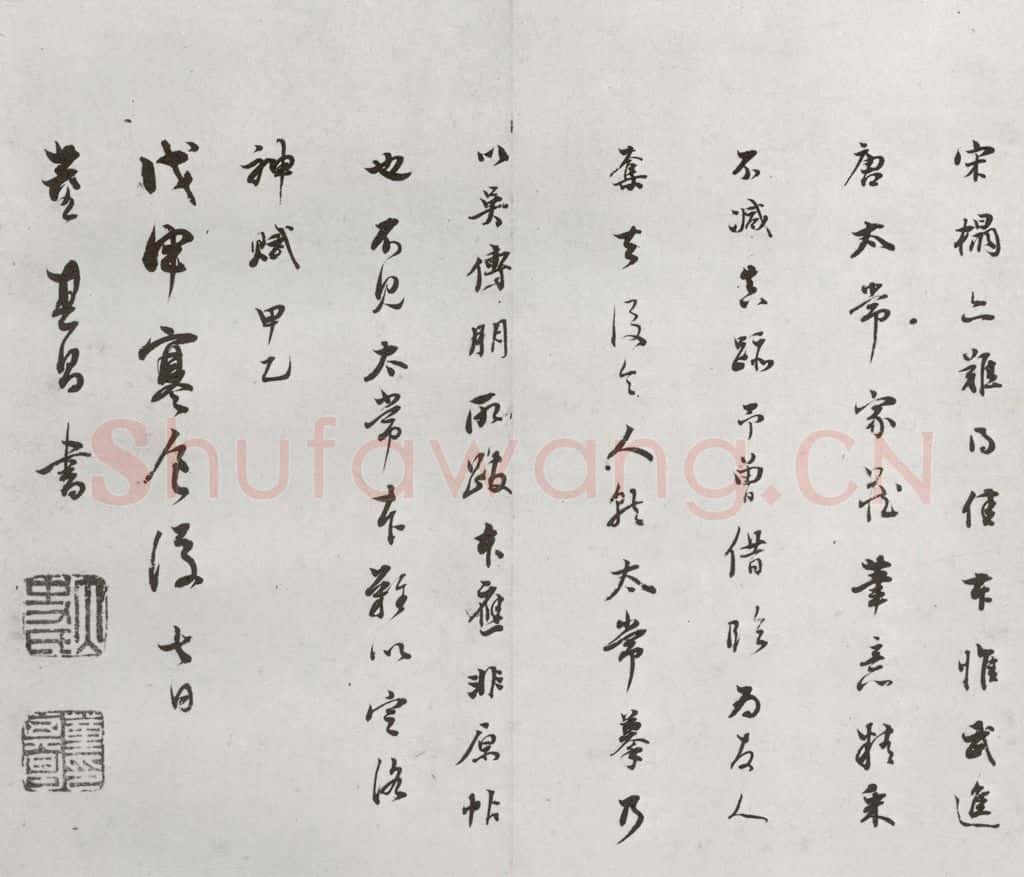 宋榻亦難得佳本惟武進
唐太常家藏筆意精采
不減真蹟予曾借臨為友人
奪去後之人能太常摹乃
以吳傅朋所跋本應非原帖
也不見太常本難以定洛
神賦甲乙
戊申寒食後七日
董其昌書
太史氏
董其昌印
Shufawang.CN